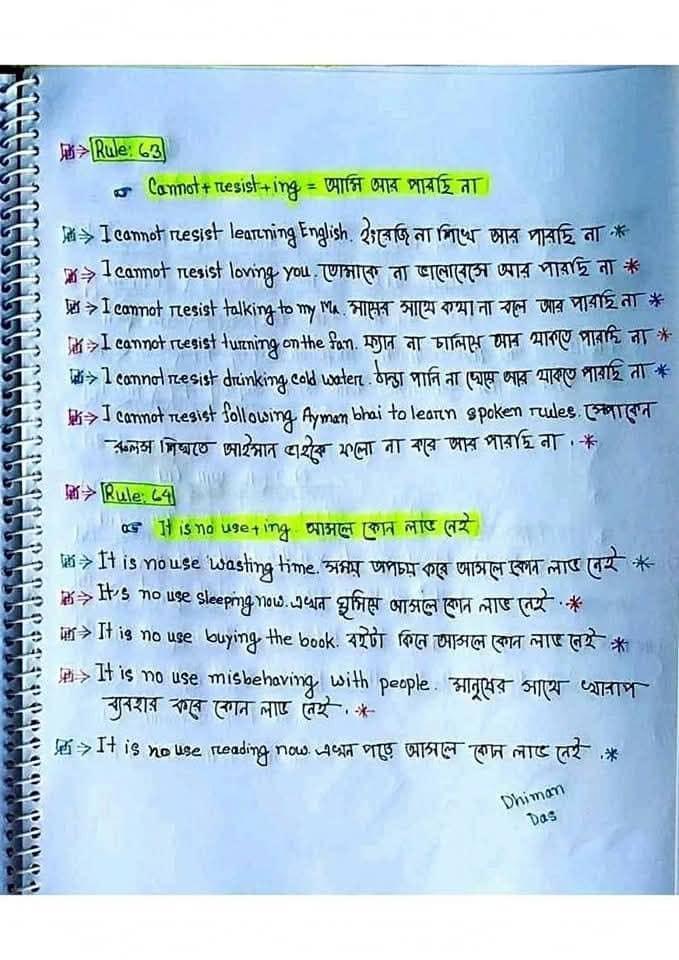 Rule: 63
Cannot+resist+ing = আমি আর পারছি না
I cannot resist learning English. ইংরেজি না শিখে আর পারছি না
I cannot resist loving you. তোমাকে না ভালোবেসে আর পারছি না
I cannot resist talking to my Ma. মায়ের সাথে কথা না বলে আর পারছি না
I cannot resist turning on the fan. ফ্যান না চালিয়ে আর থাকতে পারছি না
I cannot resist drinking cold water. ঠান্ডা পানি না খেয়ে আর থাকতে পারছি না
I cannot resist following Ayman bhai to learn spoken rules. স্পোকেন
রুলস শিখতে আইমান ভাইকে ফলো না করে আর পারছি না.
Rule: 64
It is no use+ing. আসলে কোন লাভ নেই
It is no use wasting time. সময় অপচয় করে আসলে কোন লাভ নেই
It's no use sleeping now. এখন ঘুমিয়ে আসলে কোন লাভ নেই.
It is no use buying the book. বইটা কিনে আসলে কোন লাভ নেই
It is no use misbehaving with people. মানুষের সাথে খারাপ
ব্যবহার করে কোন লাভ নেই.
It is no use reading now. এখন পড়ে আসলে কোন লাভ নেই.
Dhiman
Das